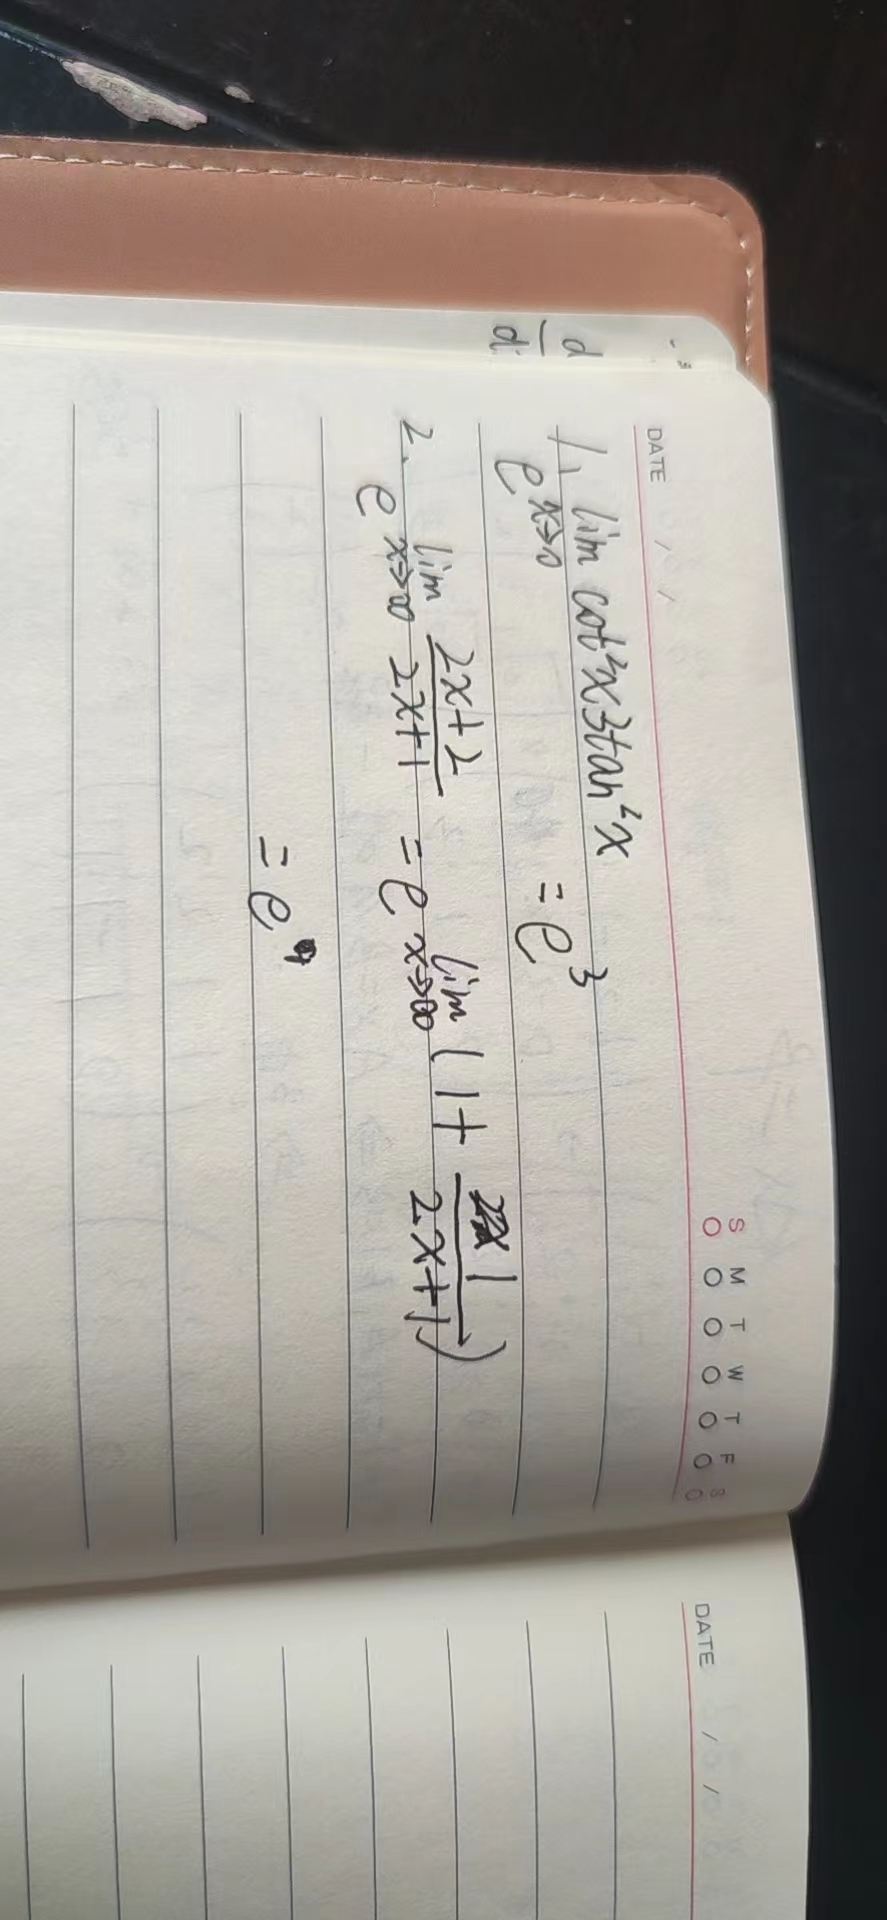 DATE / /
S M T W T F S
d
d
1. e^{lim x→0 cot²x 3tan²x} = e³
2. e^{lim x→∞ (2x+2)/(2x+1)} = e^{lim x→∞ (1+ 1/(2x+1))}
= e
DATE / /